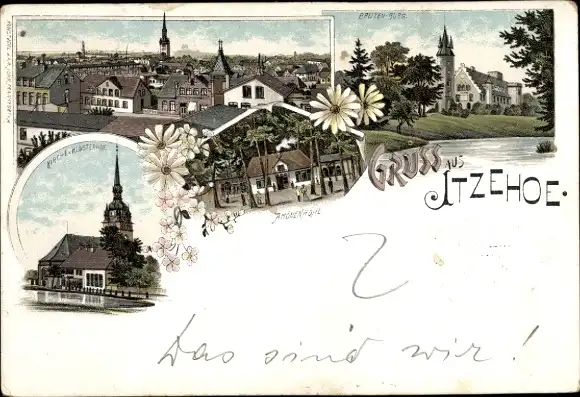 BRUTEN-BURG.
KIRCHE-KLOSTERHOF
AMÖNENHÖHE
GRUSS AUS
ITZEHOE.
Das sind wir!